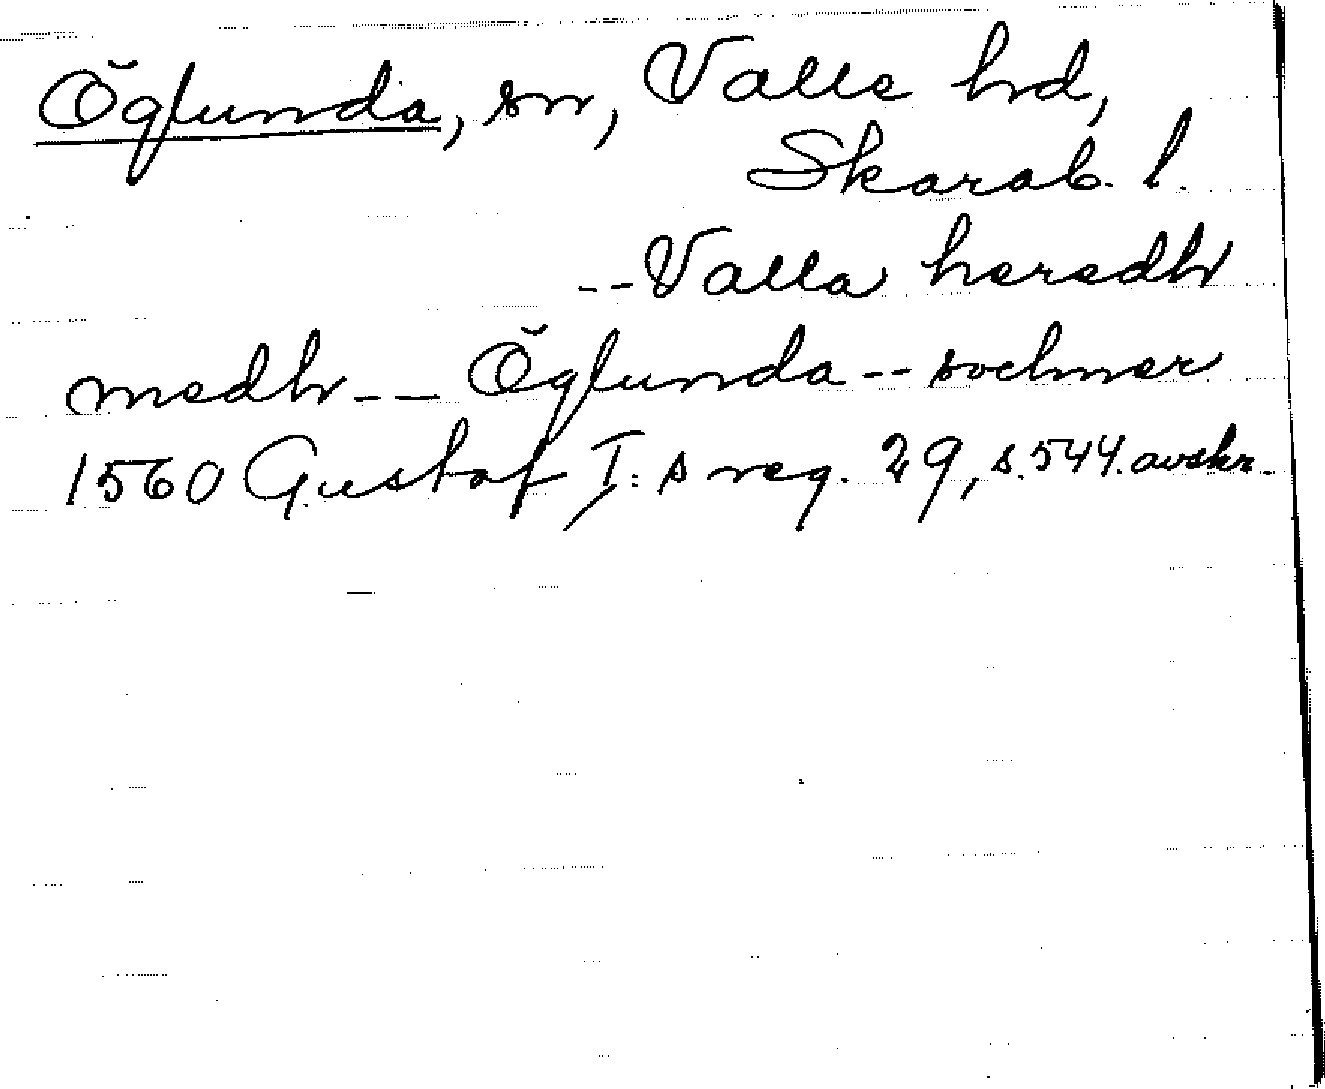 Öglunda, sn, Valle hd,
Skarab. l.
--Valla heredh
medh -- Öglunda -- sochner
1560 Gustaf I:s reg. 29, s. 544. avskr.